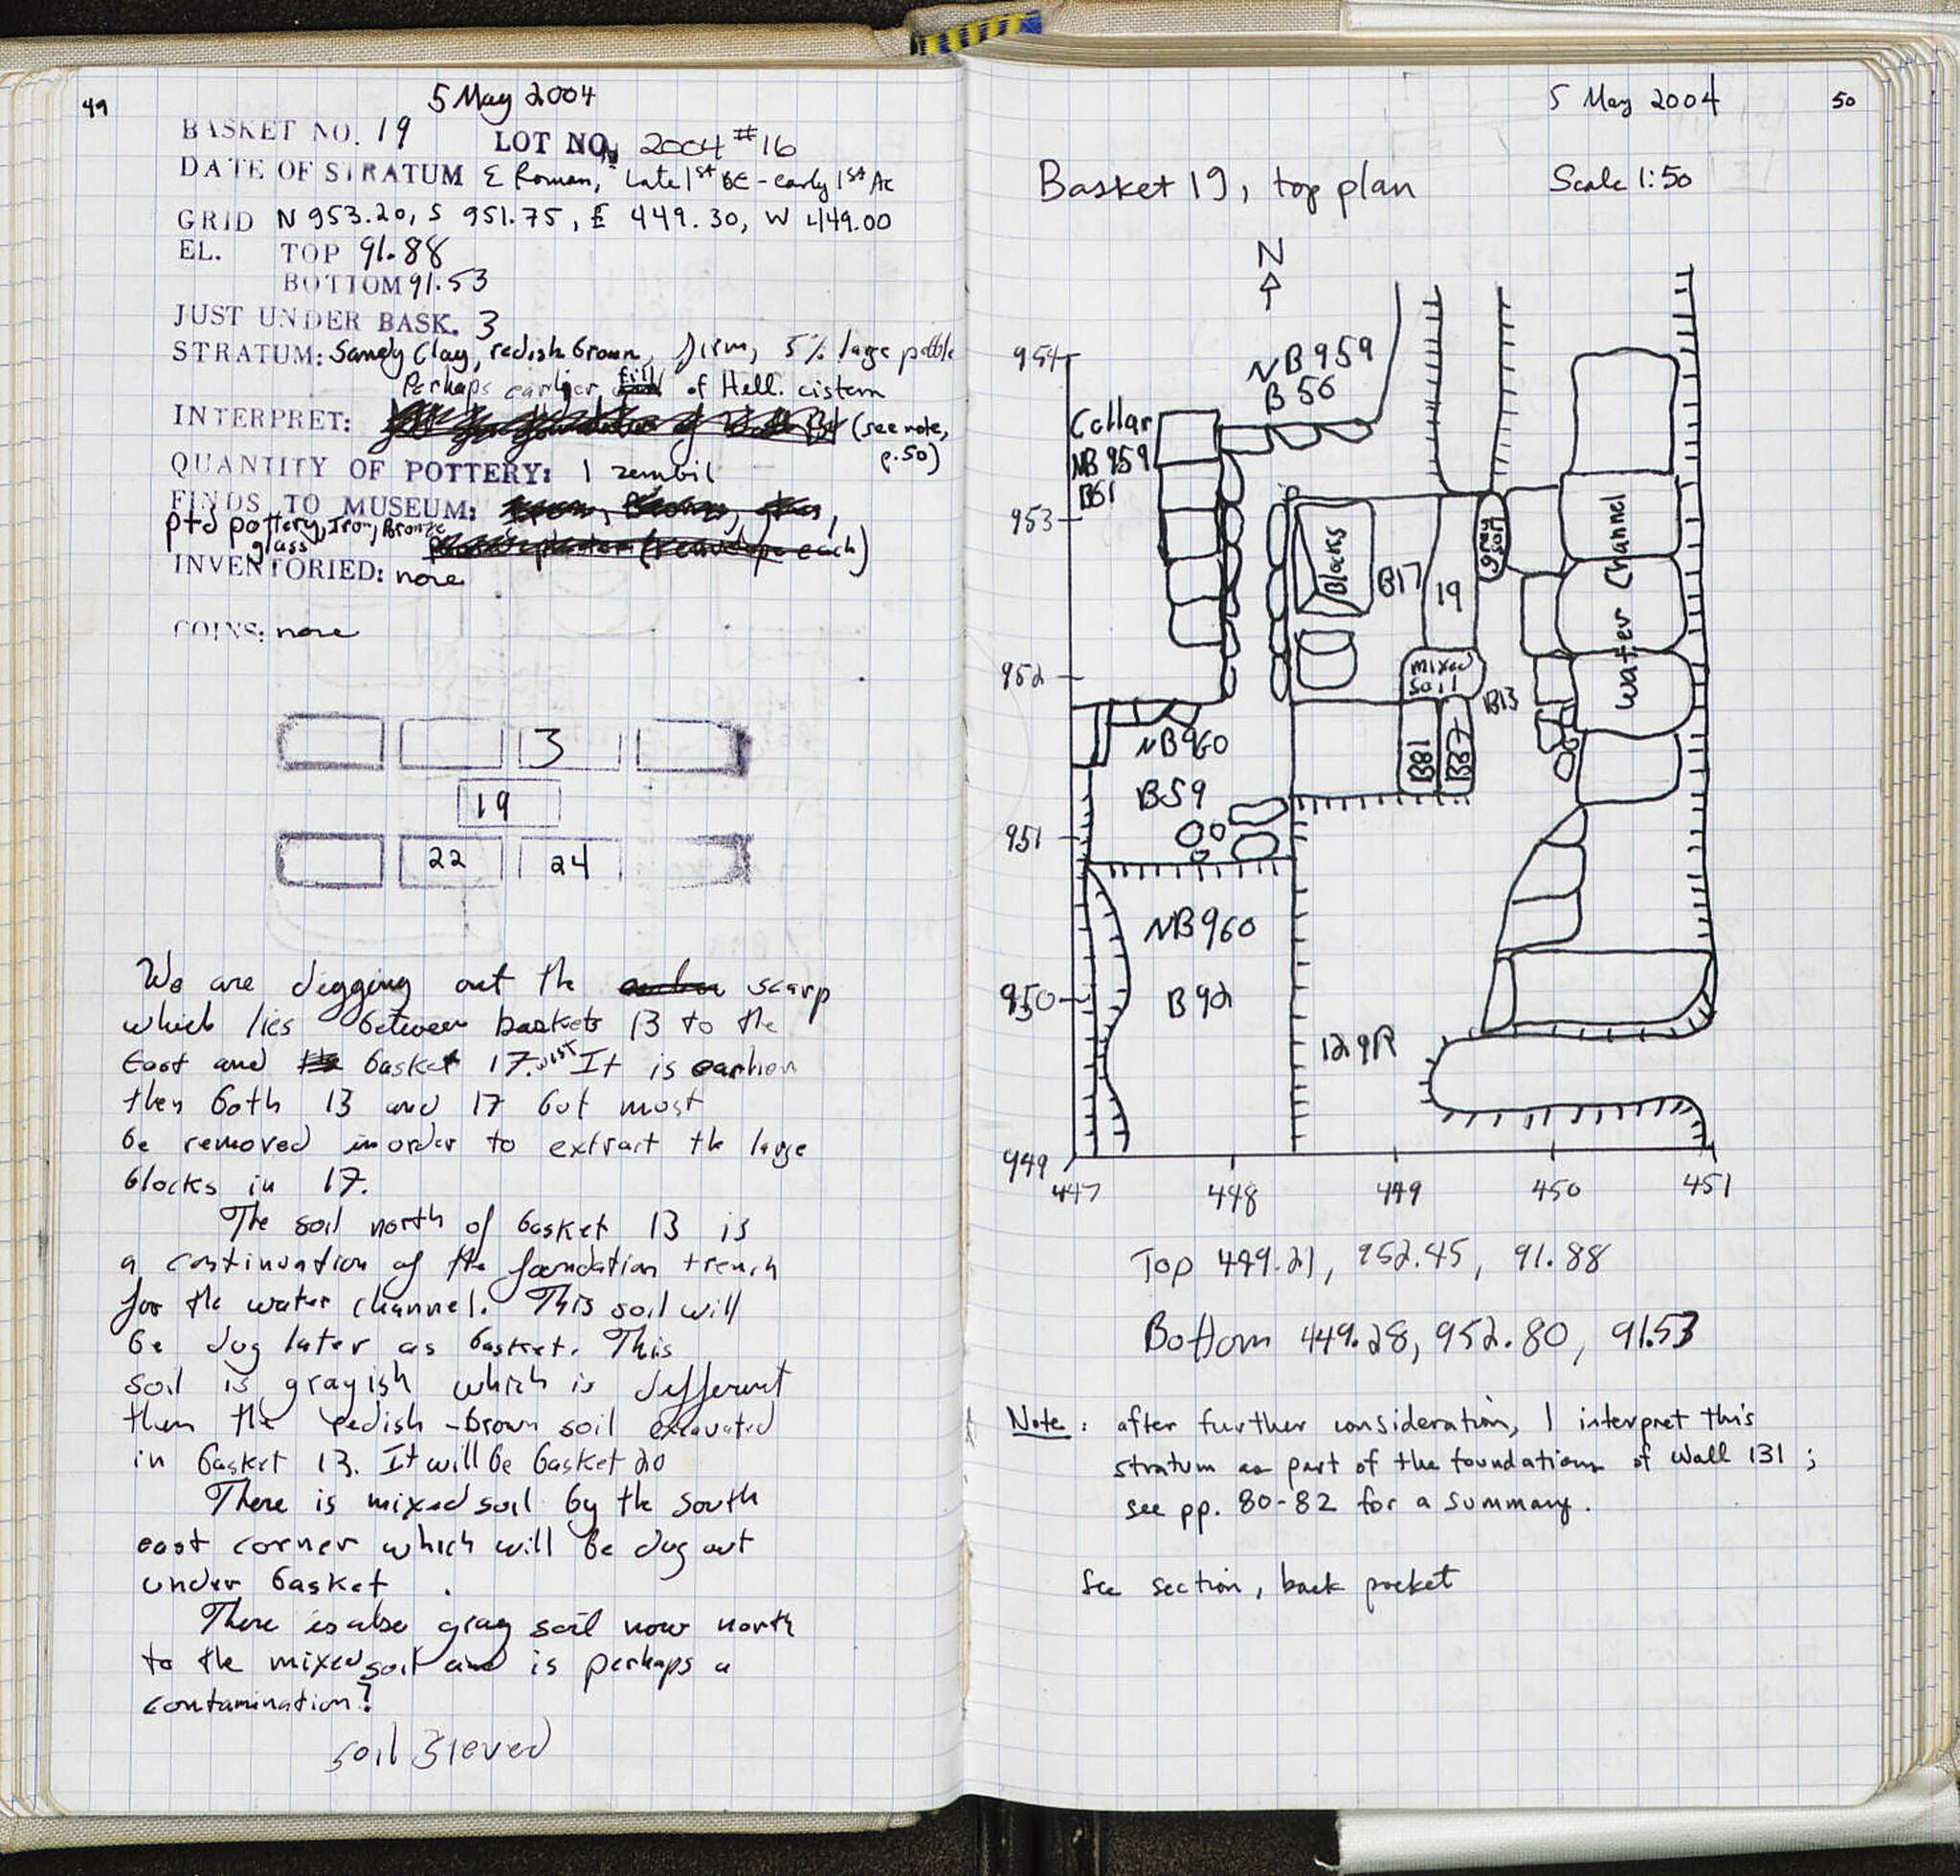 49
5 May 2004
BASKET NO. 19 LOT NO. 2004 #16
DATE OF STRATUM E Roman, Late 1st BC - early 1st AC
GRID N 953.20, S 951.75, E 449.30, W 449.00
EL. TOP 91.88
BOTTOM 91.53
JUST UNDER BASK. 3
STRATUM: Sandy Clay, redish brown, firm, 5% large pebble
Perhaps earlier fill of Hell. cistern
INTERPRET: (see note,
p.50)
QUANTITY OF POTTERY: 1 zembil
FINDS TO MUSEUM:
ptd pottery, Iron, Bronze
glass
INVENTORIED: none
COINS: none
3
19
22 24
We are digging out the scarp
which lies between baskets 13 to the
East and basket 17. It is earlier
then both 13 and 17 but most
be removed in order to extract the large
blocks in 17.
The soil north of basket 13 is
a continuation of the foundation trench
for the water channel. This soil will
be dug later as basket. This
soil is grayish which is different
then the redish-brown soil excavated
in basket 13. It will be basket 20
There is mixed soil by the south
east corner which will be dug out
under basket .
There is also gray soil now north
to the mixed soil and is perhaps a
contamination?
soil sieved
5 May 2004
50
Basket 19, top plan Scale 1:50
N
954
NB959
B56
Collar
NB959
B61
953
Blocks
B17
19
gray soil
Water Channel
952
mixed
soil
B13
NB960
B59
B81
B87
951
NB960
950
B92
129R
949
447 448 449 450 451
Top 449.21, 952.45, 91.88
Bottom 449.28, 952.80, 91.53
Note: after further consideration, I interpret this
stratum as part of the foundations of Wall 131;
see pp. 80-82 for a summary.
See section, back pocket